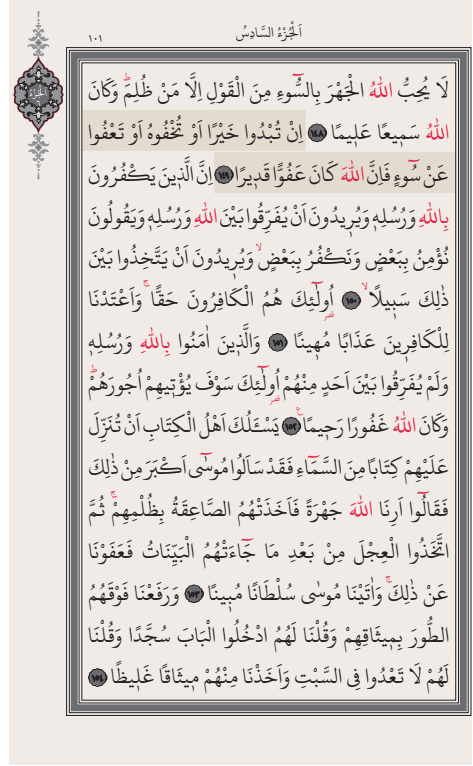 اَلْجُزْءُ السَّادِسُ
١٠١
لَا يُحِبُّ اللّٰهُ الْجَهْرَ بِالسُّٓوءِ مِنَ الْقَوْلِ اِلَّا مَنْ ظُلِمَۜ وَكَانَ
اللّٰهُ سَمٖيعًا عَلٖيمًا ﴿١٤٨﴾ اِنْ تُبْدُوا خَيْرًا اَوْ تُخْفُوهُ اَوْ تَعْفُوا
عَنْ سُٓوءٍ فَاِنَّ اللّٰهَ كَانَ عَفُوًّا قَدٖيرًا ﴿١٤٩﴾ اِنَّ الَّذٖينَ يَكْفُرُونَ
بِاللّٰهِ وَرُسُلِهٖ وَيُرٖيدُونَ اَنْ يُفَرِّقُوا بَيْنَ اللّٰهِ وَرُسُلِهٖ وَيَقُولُونَ
نُؤْمِنُ بِبَعْضٍ وَنَكْفُرُ بِبَعْضٍۙ وَيُرٖيدُونَ اَنْ يَتَّخِذُوا بَيْنَ
ذٰلِكَ سَبٖيلًاۙ ﴿١٥٠﴾ اُولٰٓئِكَ هُمُ الْكَافِرُونَ حَقًّاۚ وَاَعْتَدْنَا
لِلْكَافِرٖينَ عَذَابًا مُهٖينًا ﴿١٥١﴾ وَالَّذٖينَ اٰمَنُوا بِاللّٰهِ وَرُسُلِهٖ
وَلَمْ يُفَرِّقُوا بَيْنَ اَحَدٍ مِنْهُمْ اُولٰٓئِكَ سَوْفَ يُؤْتٖيهِمْ اُجُورَهُمْۜ
وَكَانَ اللّٰهُ غَفُورًا رَحٖيمًاۚ ﴿١٥٢﴾ يَسْـَٔلُكَ اَهْلُ الْكِتَابِ اَنْ تُنَزِّلَ
عَلَيْهِمْ كِتَابًا مِنَ السَّمَٓاءِ فَقَدْ سَاَلُوا مُوسٰٓى اَكْبَرَ مِنْ ذٰلِكَ
فَقَالُٓوا اَرِنَا اللّٰهَ جَهْرَةً فَاَخَذَتْهُمُ الصَّاعِقَةُ بِظُلْمِهِمْۚ ثُمَّ
اتَّخَذُوا الْعِجْلَ مِنْ بَعْدِ مَا جَٓاءَتْهُمُ الْبَيِّنَاتُ فَعَفَوْنَا
عَنْ ذٰلِكَۚ وَاٰتَيْنَا مُوسٰى سُلْطَانًا مُبٖينًا ﴿١٥٣﴾ وَرَفَعْنَا فَوْقَهُمُ
الطُّورَ بِمٖيثَاقِهِمْ وَقُلْنَا لَهُمُ ادْخُلُوا الْبَابَ سُجَّدًا وَقُلْنَا
لَهُمْ لَا تَعْدُوا فِي السَّبْتِ وَاَخَذْنَا مِنْهُمْ مٖيثَاقًا غَلٖيظًا ﴿١٥٤﴾